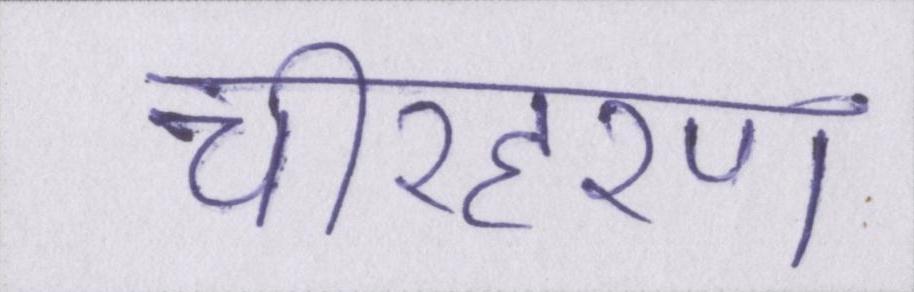 चीरहरण